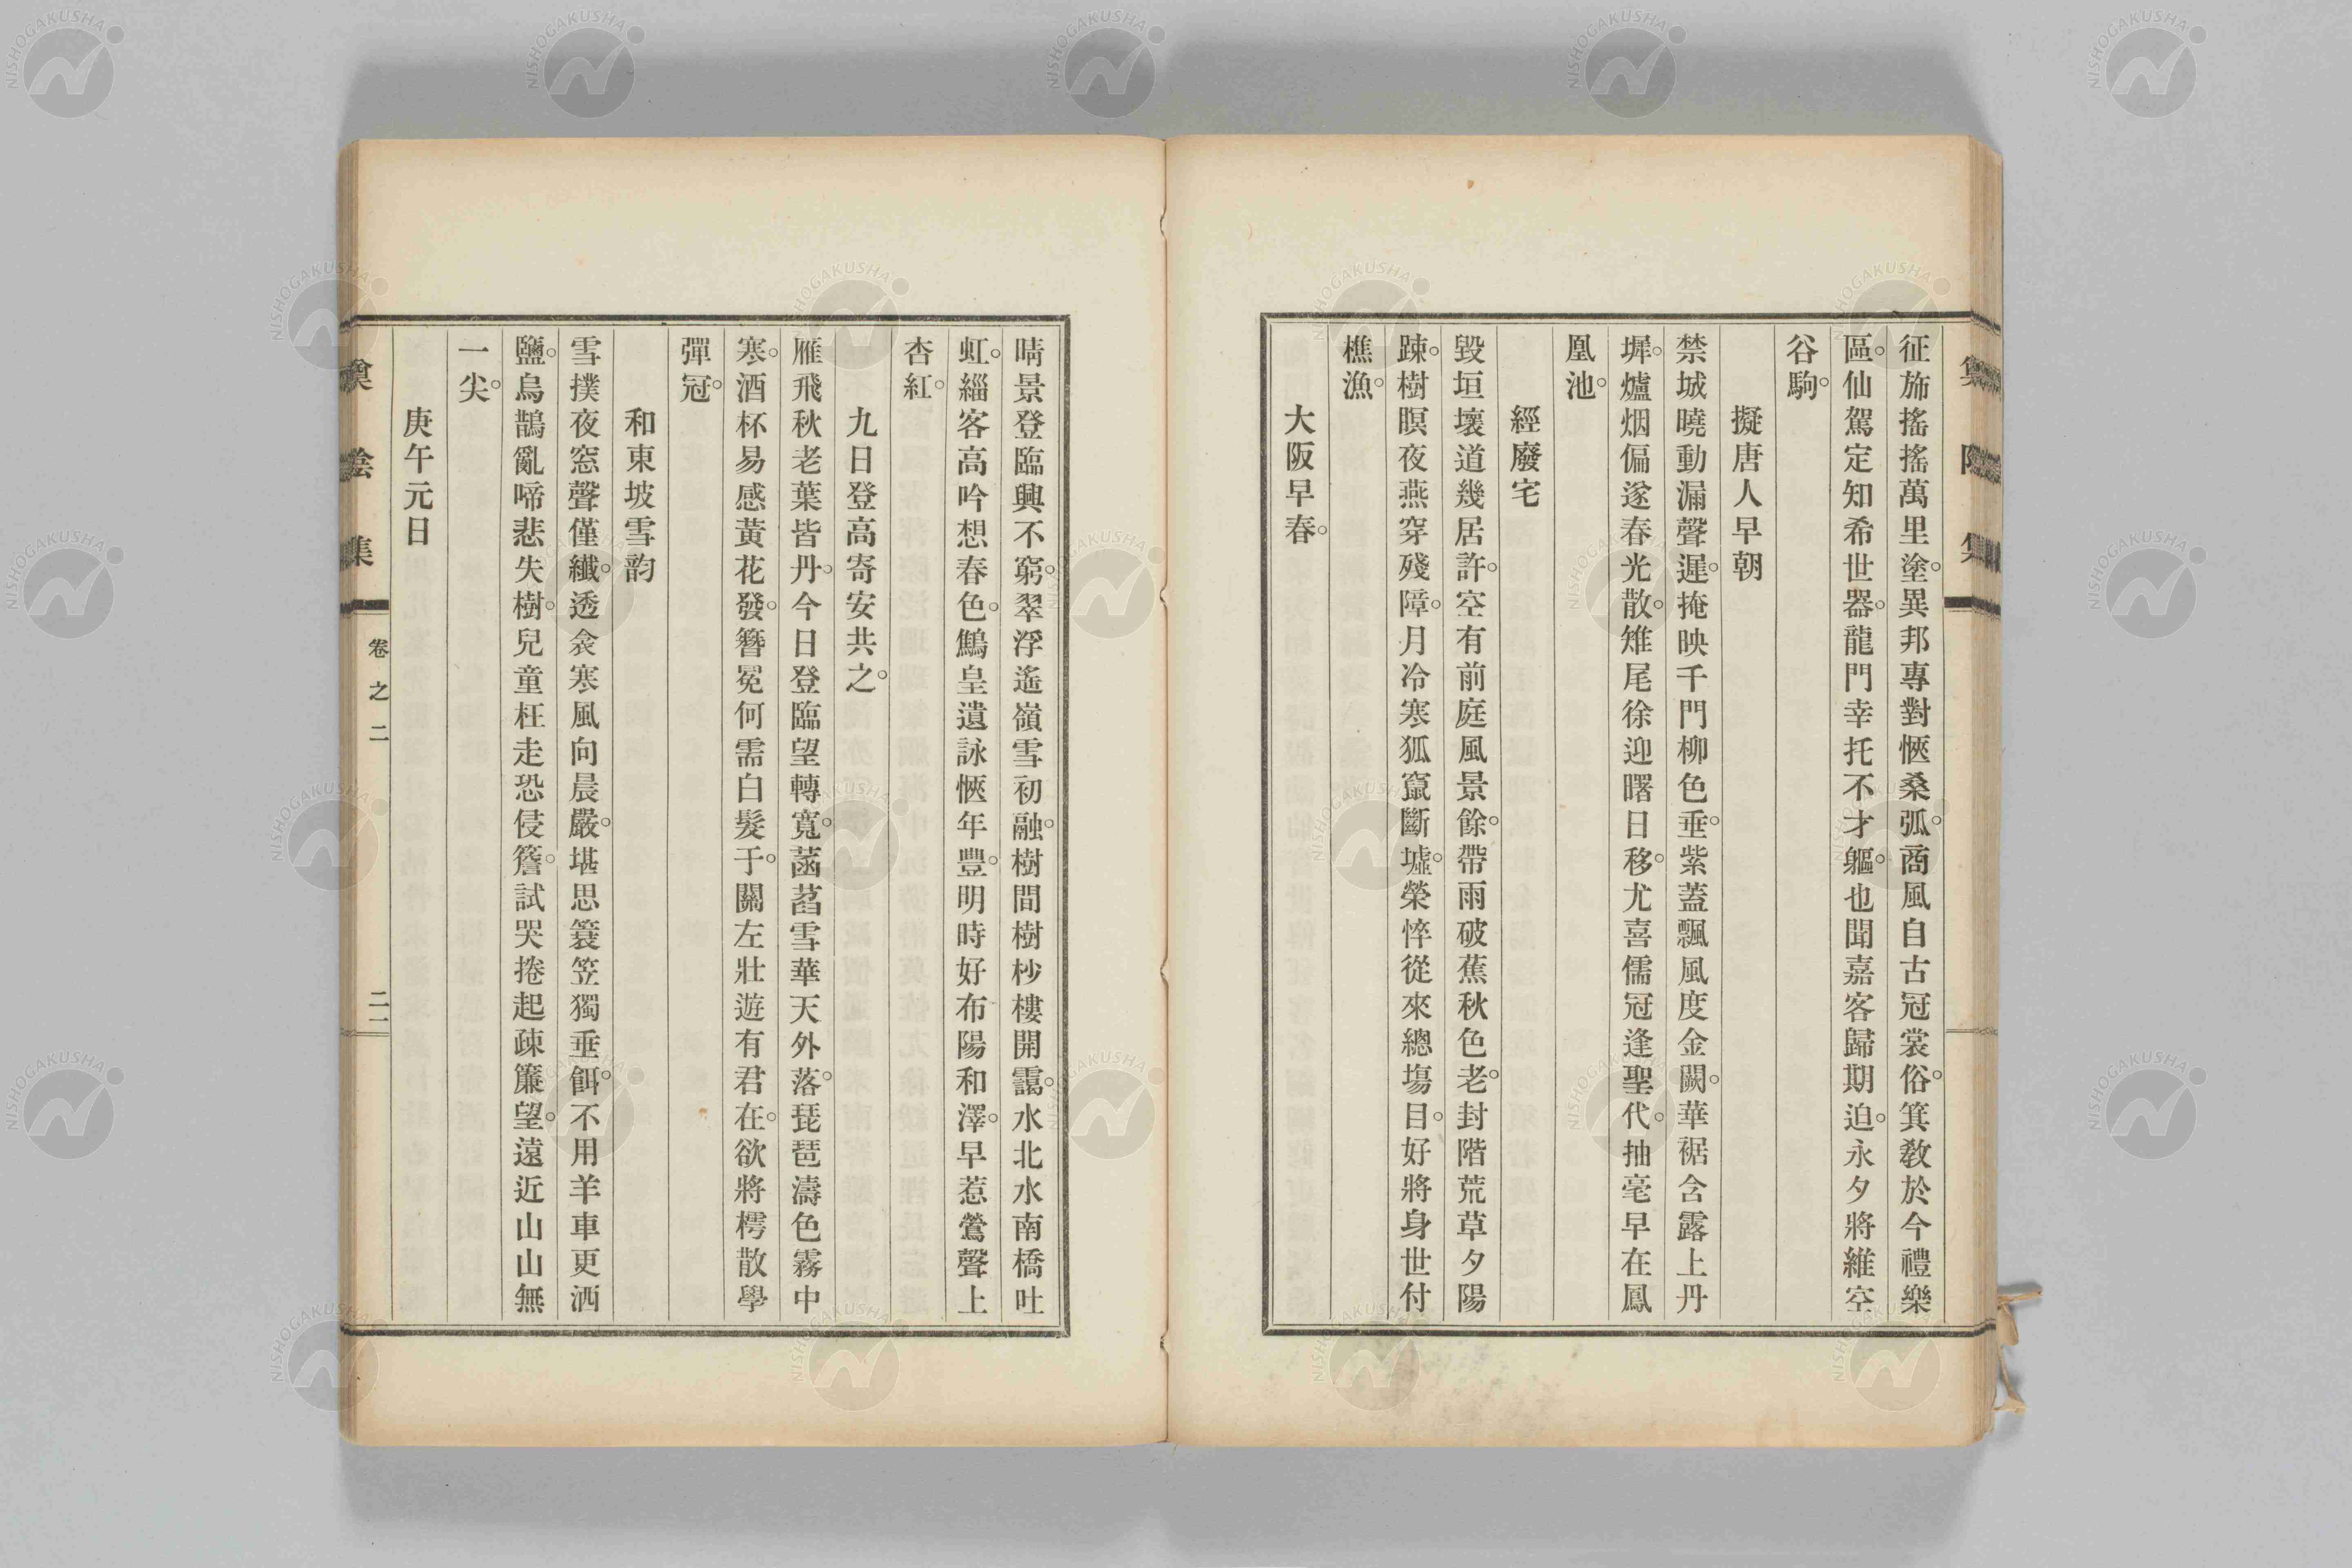 征斾搖搖萬里塗。異邦專對愜桑弧。商風自古冠裳俗。箕敎於今禮樂
區。仙駕定知希世器。龍門幸托不才軀。也聞嘉客歸期迫。永夕將維空
谷駒。
擬唐人早朝
禁城曉動漏聲遲。掩映千門柳色垂。紫蓋飄風度金闕。華裾含露上丹
墀。爐烟偏遂春光散。雉尾徐迎曙日移。尤喜儒冠逢聖代。抽毫早在鳳
凰池。
經廢宅
毀垣壞道幾居許。空有前庭風景餘。帶雨破蕉秋色老。封階荒草夕陽
踈。樹暝夜燕穿殘障。月冷寒狐竄斷墟。榮悴從來總塲目。好將身世付
樵漁。
大阪早春。
晴景登臨興不窮。翠浮遙嶺雪初融。樹間樹杪樓開靄。水北水南橋吐
虹。緇客高吟想春色。鷦皇遺詠愜年豐。明時好布陽和澤。早惹鶯聲上
杏紅。
九日登高寄安共之。
雁飛秋老葉皆丹。今日登臨望轉寬。菡萏雪華天外落。琵琶濤色霧中
寒。酒杯易感黃花發。簪冕何需白髮于。關左壯遊有君在。欲將樗散學
彈冠。
和東坡雪韵
雪撲夜窓聲僅纖。透衾寒風向晨嚴。堪思簑笠獨垂餌。不用羊車更洒
鹽。烏鵲亂啼悲失樹。兒童枉走恐侵簷。試哭捲起疎簾望。遠近山山無
一尖。
庚午元日
集
卷之二
二一
NISHOGAKUSHA